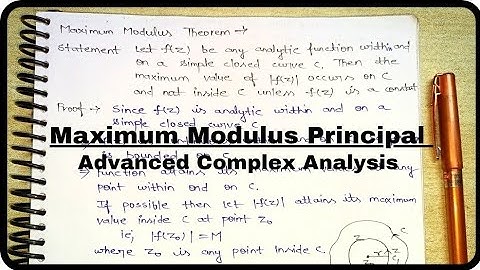 Maximum Modulus Theorem →
Statement Let f(z) be any analytic function within and
on a simple closed curve C. Then the
maximum value of |f(z)| occurs on C
and not inside C unless f(z) is a constant
Proof → Since f(z) is analytic within and on a
simple closed curve C
Maximum Modulus Principal
is bounded on C
Advanced Complex Analysis
⇒ function attains its maximum
point within and on C.
If possible then let |f(z)| attains its maximum
value inside C at point z₀
ie, |f(z₀)| = M
where z₀ is any point inside C.
C
z
r
z₀